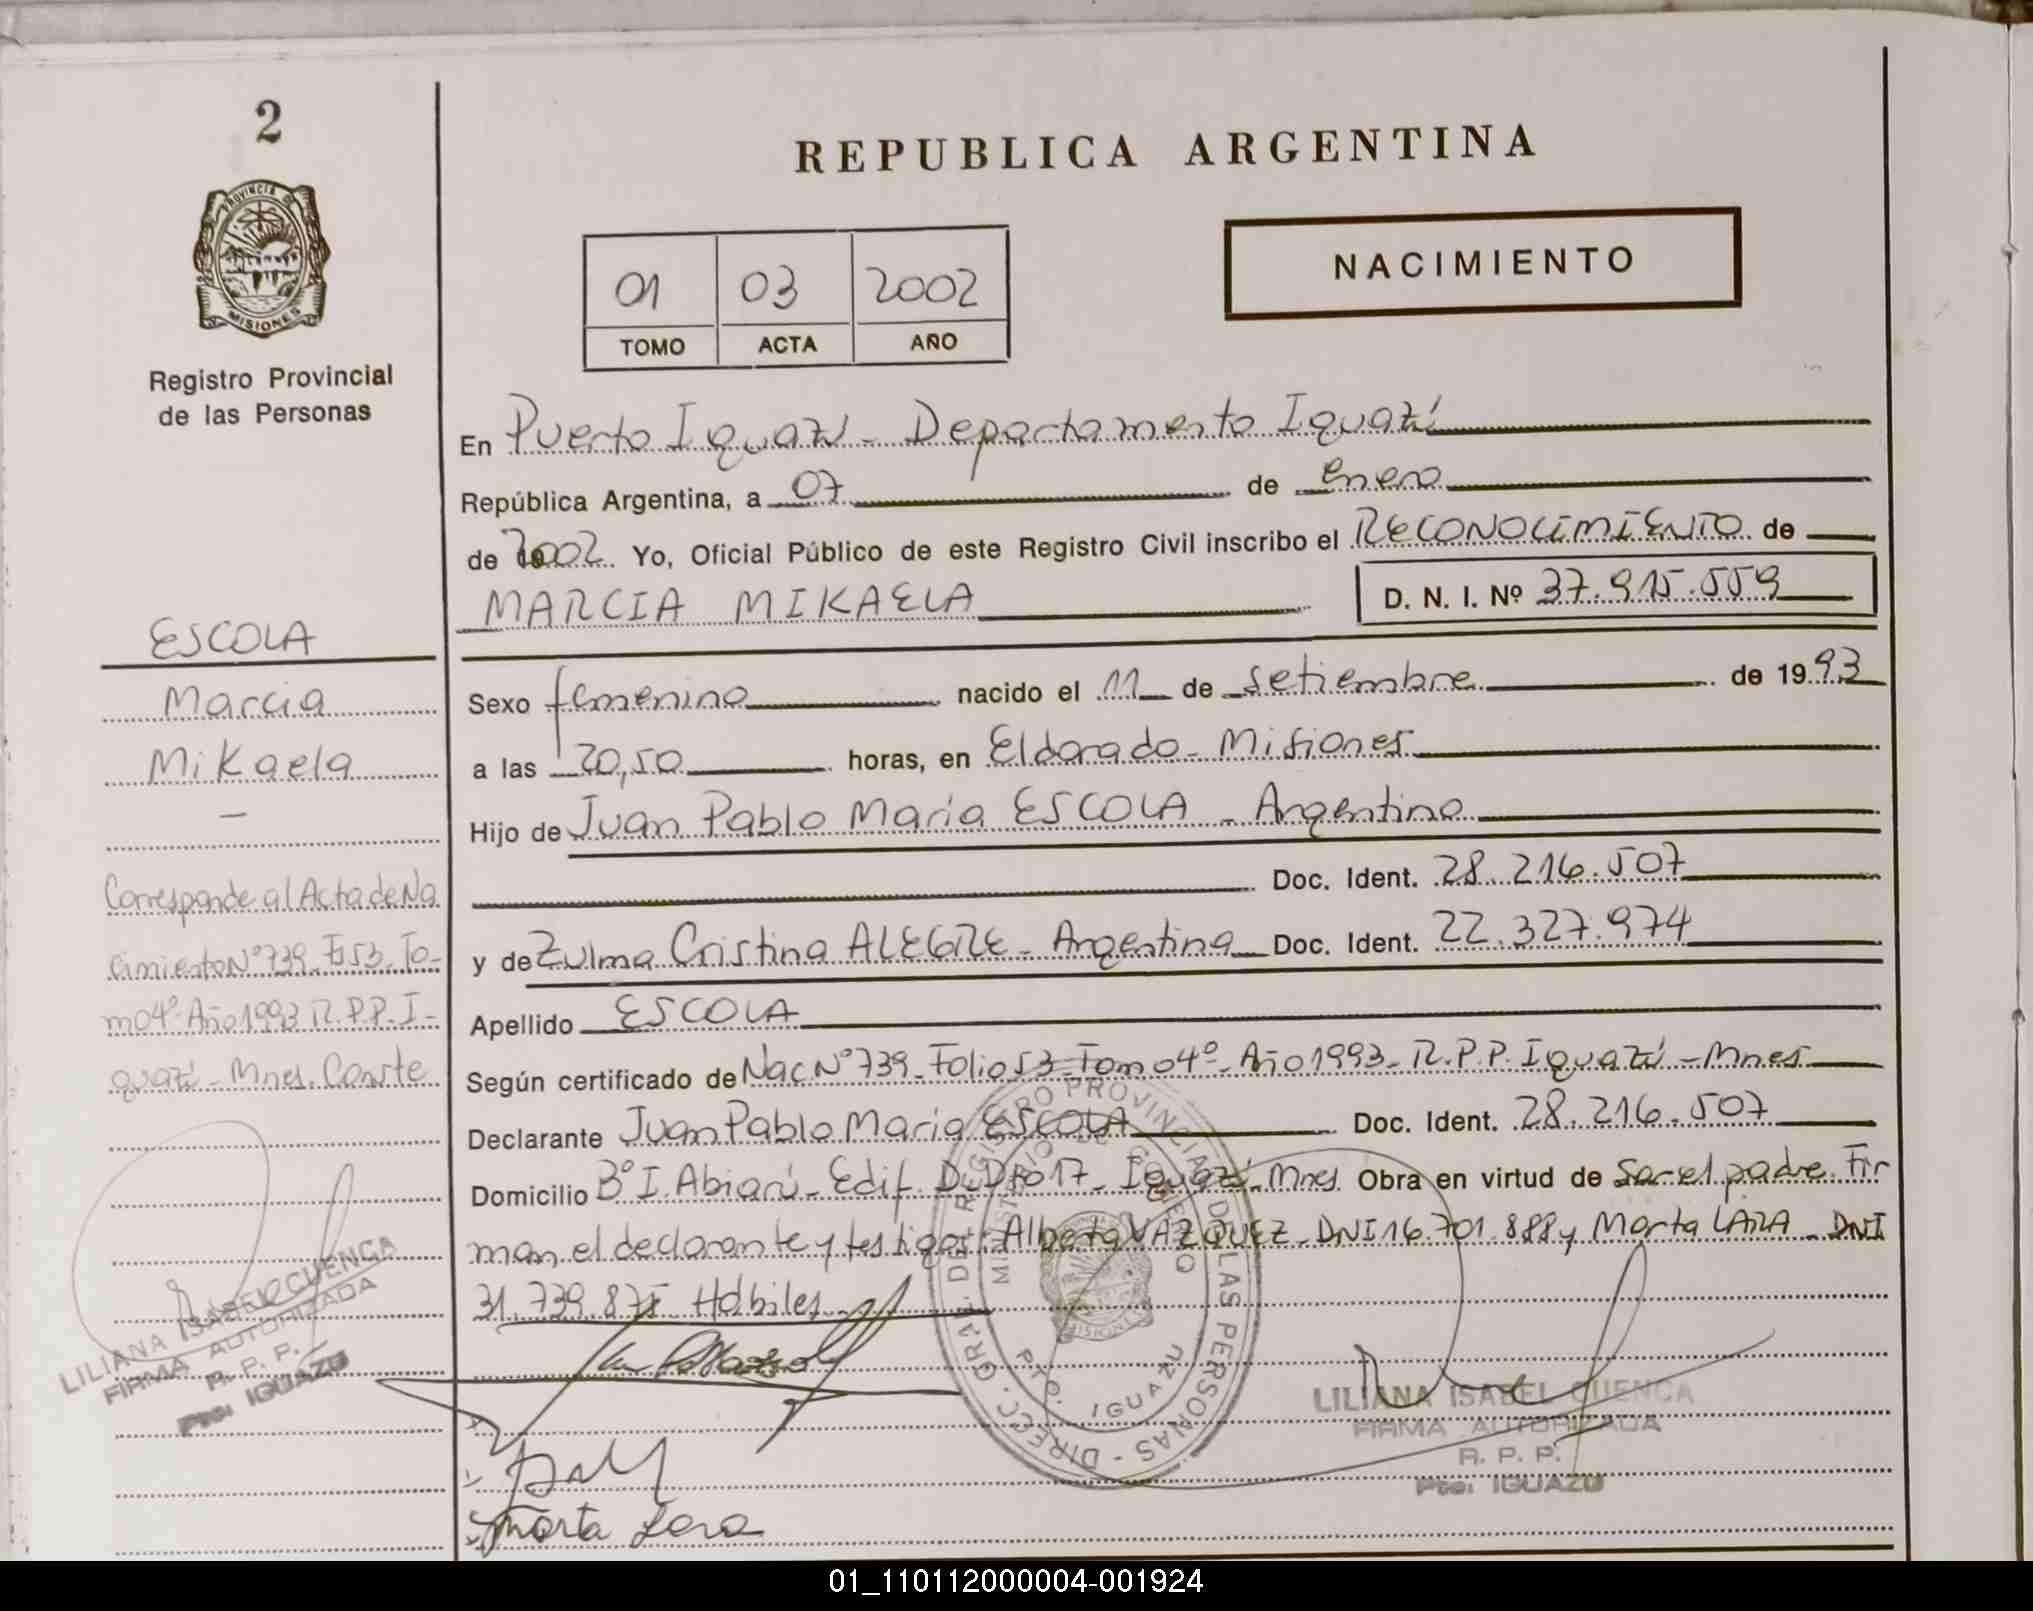 2
PROVINCIA DE
MISIONES
Registro Provincial
de las Personas
ESCOLA
Marcia
Mikaela
—
Corresponde al Acta de Na
cimiento Nº 739. Fº 53. To-
mo 4º Año 1993 R.P.P. I-
guazú - Mnes. Conste
LILIANA ISABEL CUENCA
FIRMA AUTORIZADA
R. P. P.
Pto: IGUAZU
REPUBLICA ARGENTINA
01 03 2002
TOMO ACTA AÑO
NACIMIENTO
En Puerto Iguazú - Departamento Iguazú
República Argentina, a 07 de enero
de 2002 Yo, Oficial Público de este Registro Civil inscribo el RECONOCIMIENTO de
MARCIA MIKAELA D. N. I. Nº 37.915.559
Sexo femenino nacido el 11 de setiembre de 1993
a las 20,50 horas, en Eldorado - Misiones
Hijo de Juan Pablo María ESCOLA - Argentino
Doc. Ident. 28.216.507
y de Zulma Cristina ALEGRE - Argentina Doc. Ident. 22.327.974
Apellido ESCOLA
Según certificado de Nac Nº 739 - Folio 53 - Tomo 4º - Año 1993 - R.P.P. Iguazú - Mnes
Declarante Juan Pablo María ESCOLA Doc. Ident. 28.216.507
Domicilio Bº I. Abiarú - Edif. D. Dto 17 - Iguazú - Mnes Obra en virtud de Ser el padre. Fir
man el declarante y testigos: Alberto VAZQUEZ - DNI 16.701.888 y Marta LARA - DNI
31.739.871 Hábiles
Marta Lara
DIRECC. GRAL. DEL REGISTRO PROVINCIAL DE LAS PERSONAS
MINISTERIO DE GOBIERNO
MISIONES
PTO. IGUAZU
LILIANA ISABEL CUENCA
FIRMA AUTORIZADA
R. P. P.
Pto: IGUAZU
01_110112000004-001924